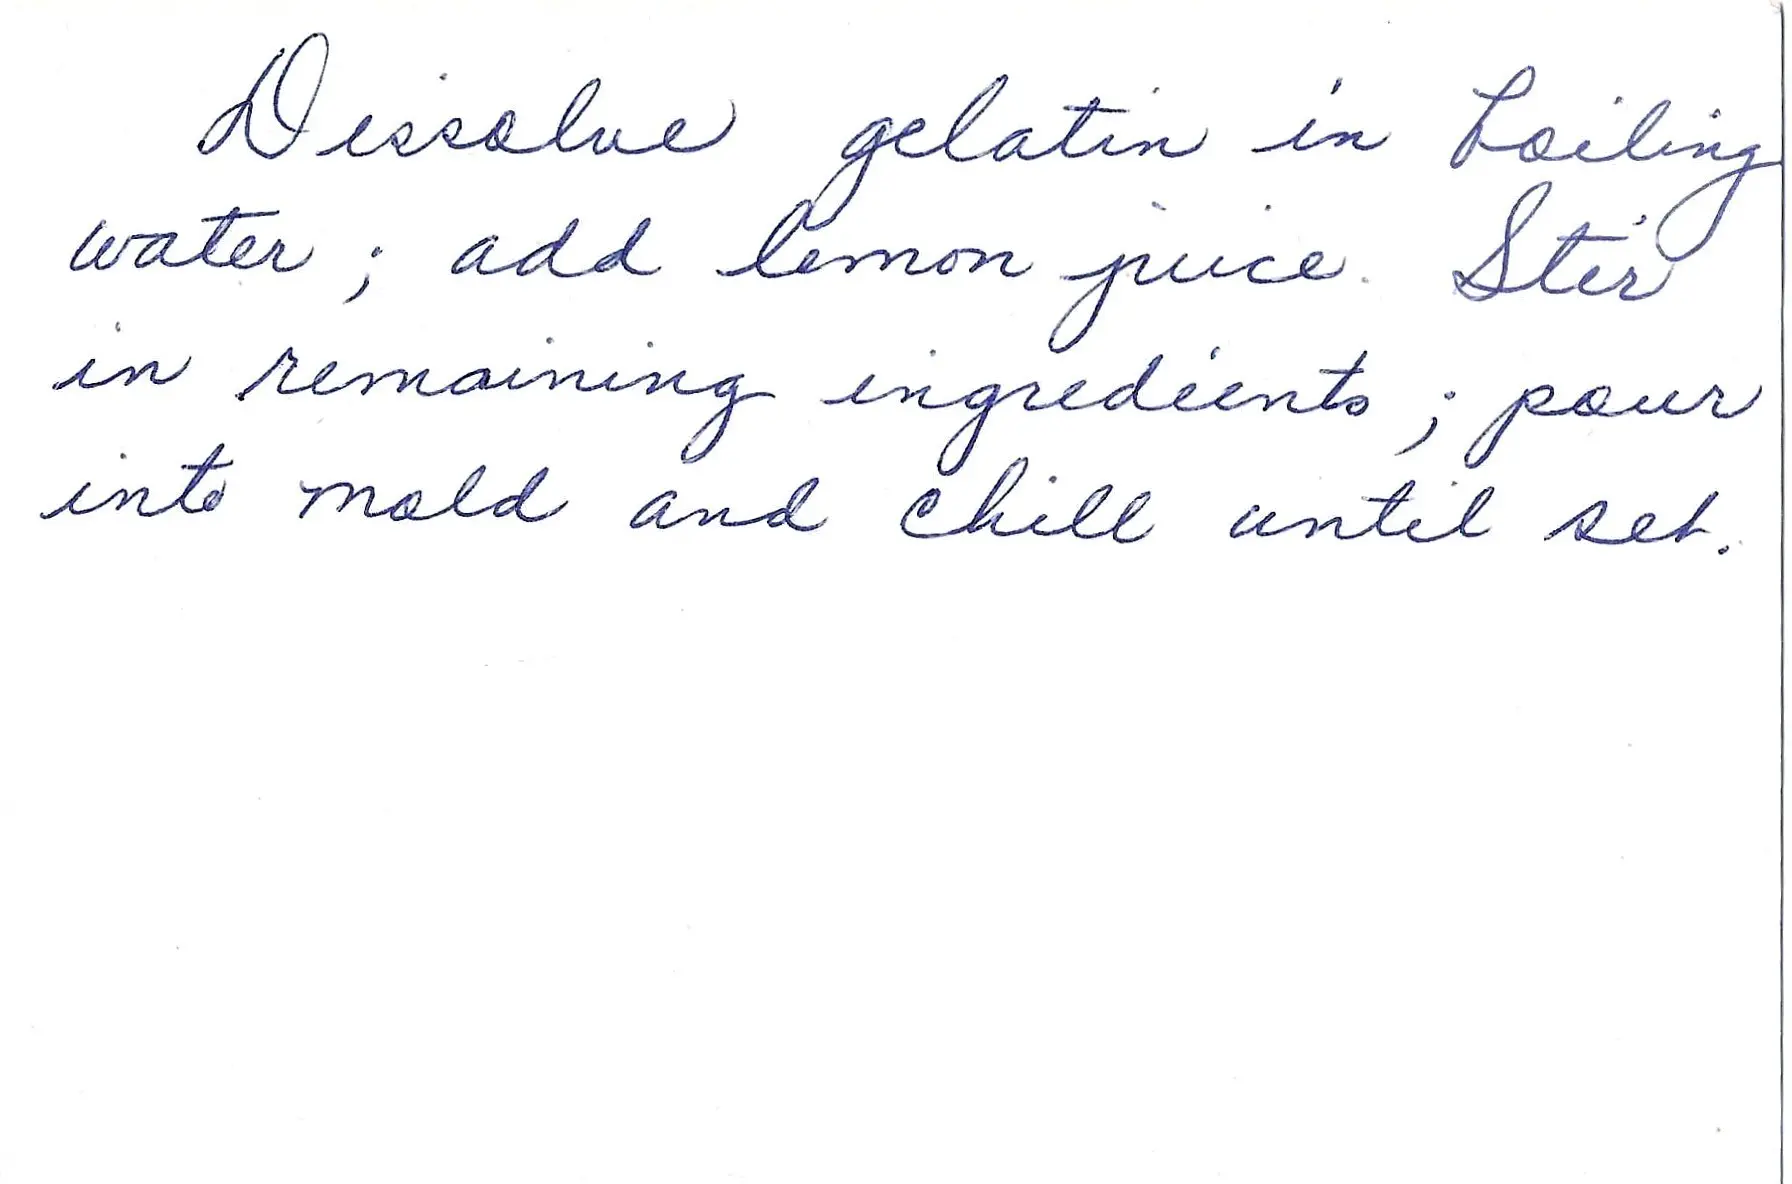 Dissolve gelatin in boiling
water; add lemon juice. Stir
in remaining ingredients; pour
into mold and chill until set.